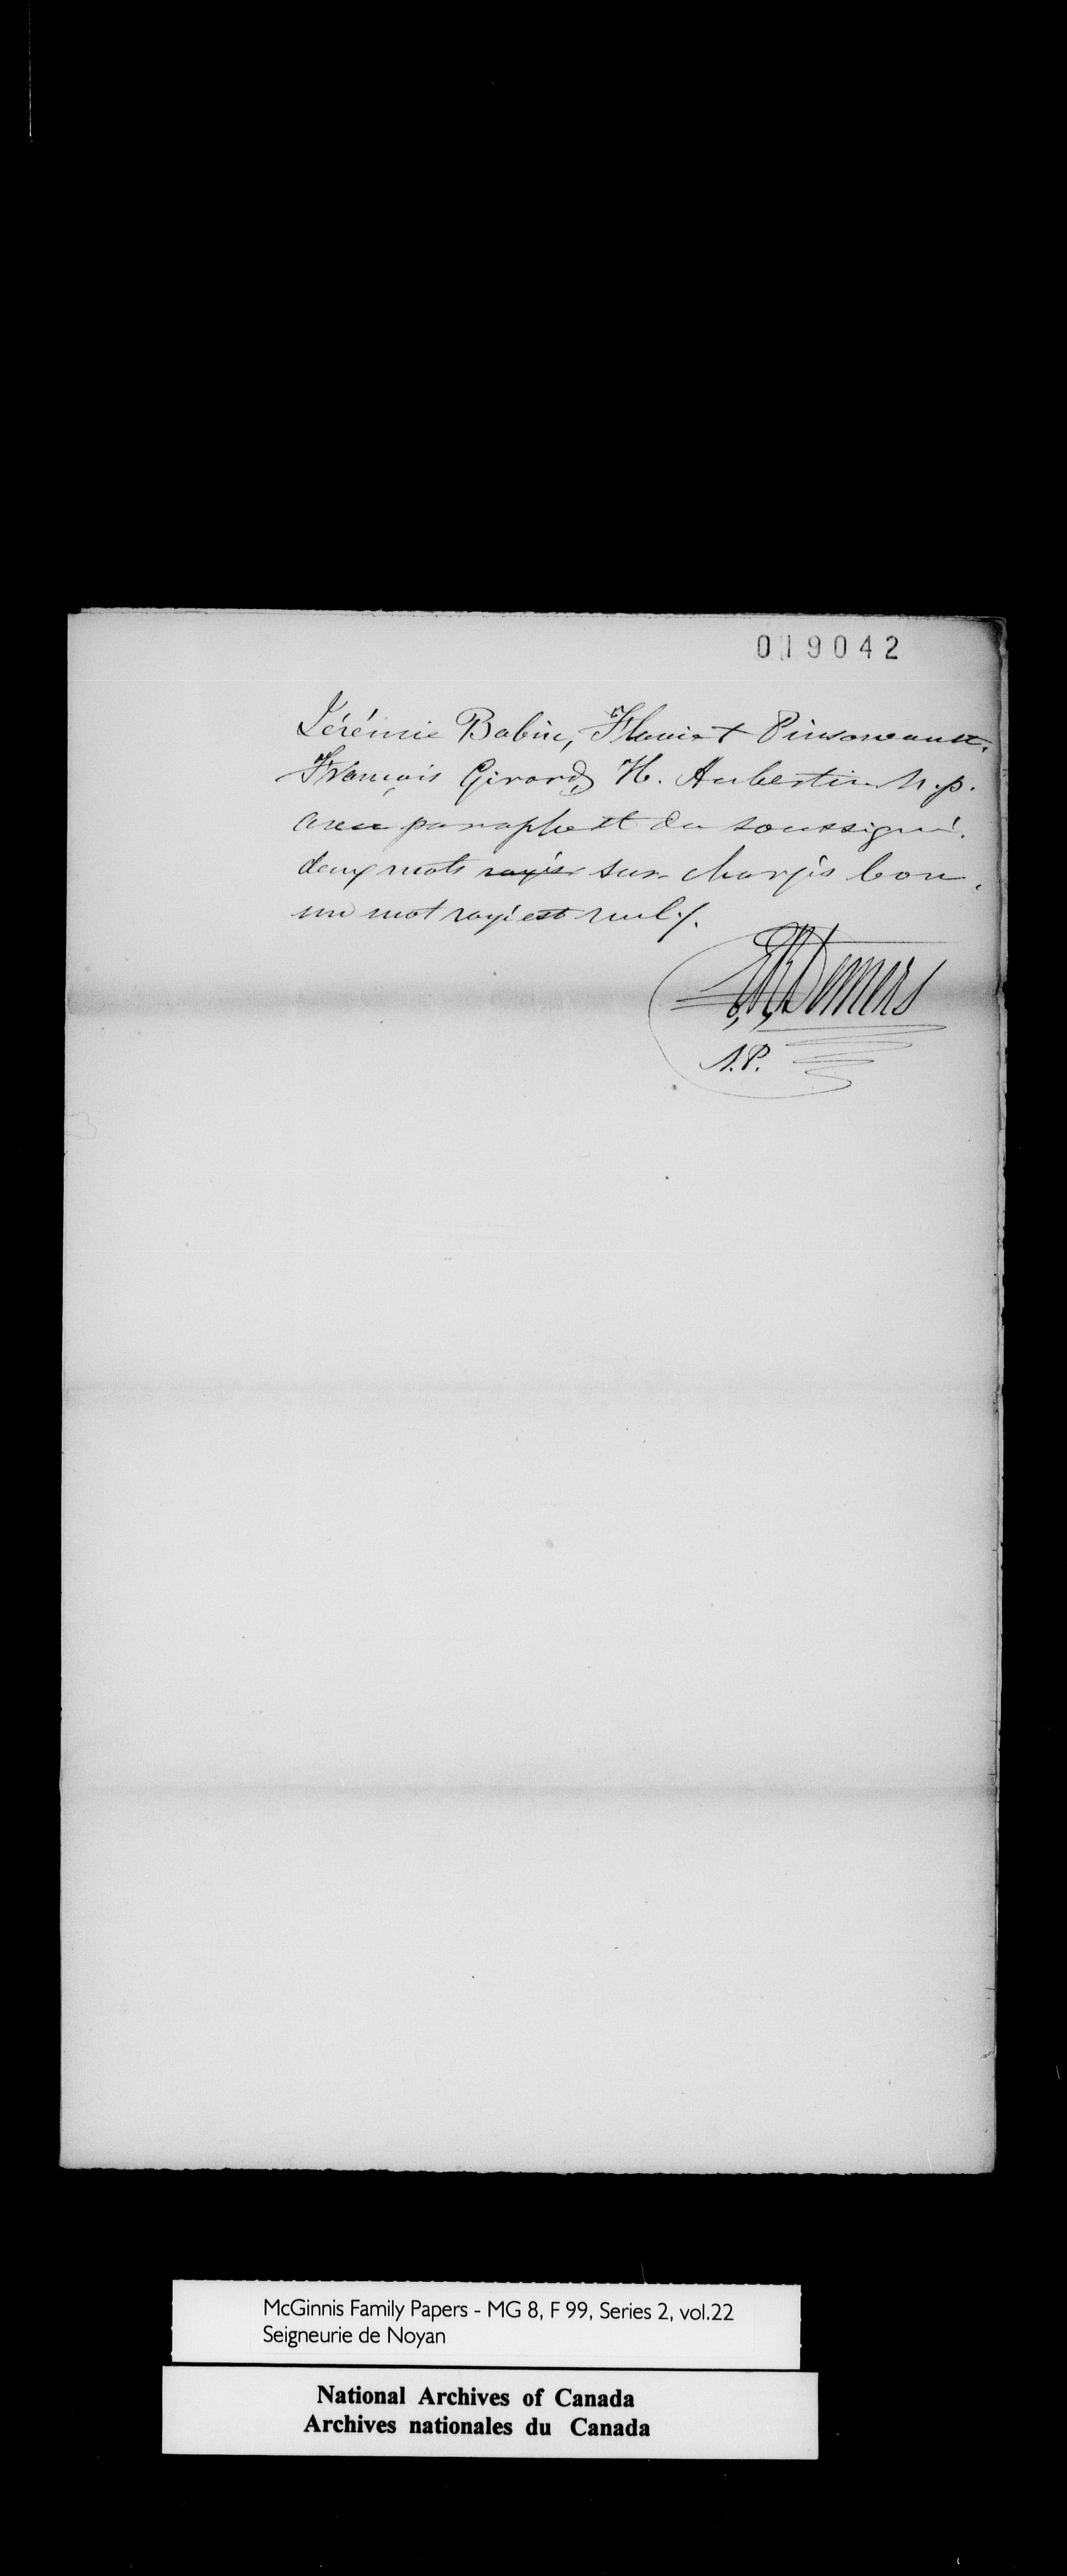 019042
Jérémie Babin, Flavie + Pinsoneault.
François Girard, H. Aubertin N.p.
avec paraphe et du soussigné.
deux mots rayés sur chargés bon.
un mot rayé est nul./.
Demers
N.P.
McGinnis Family Papers - MG 8, F 99, Series 2, vol.22
Seigneurie de Noyan
National Archives of Canada
Archives nationales du Canada